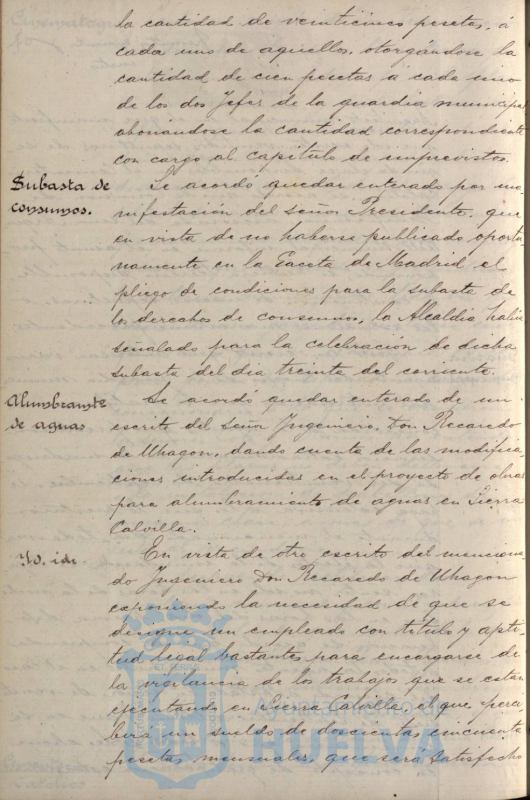 la cantidad de veinticinco pesetas, á
cada uno de aquellos, otorgándose la
cantidad de cien pesetas á cada uno
de los dos Jefes de la guardia municipal
abonándose la cantidad correspondiente
con cargo al capítulo de imprevistos.
Subasta de
consumos.
Se acordó quedar enterado por ma-
nifestación del Señor Presidente, que
en vista de no haberse publicado oportu-
namente en la Gaceta de Madrid el
pliego de condiciones para la subasta de
los derechos de consumos, la Alcaldia habia
señalado para la celebración de dicha
subasta del dia treinta del corriente.
Alumbramto
de aguas
Se acordó quedar enterado de un
escrito del Señor Ingeniero, Don Recaredo
de Uhagon, dando cuenta de las modifica-
ciones introducidas en el proyecto de obras
para alumbramiento de aguas en Sierra
Calvilla.
Yd. id.
En vista de otro escrito del menciona-
do Ingeniero Don Recaredo de Uhagon
exponiendo la necesidad de que se
designe un empleado con titulo y apti-
tud legal bastantes para encargarse de
la vigilancia de los trabajos que se están
ejecutando en Sierra Calvilla, el que perci-
birá un sueldo de doscientas cincuenta
pesetas mensuales, que será satisfecho
Ayuntamiento de
HUELVA